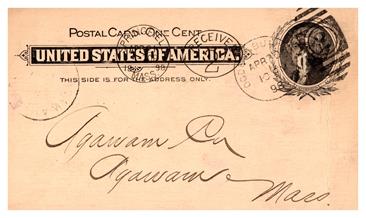 POSTAL CARD ONE CENT.
UNITED STATES OF AMERICA.
THIS SIDE IS FOR THE ADDRESS ONLY.
MASS.
RECEIVED
APR
Agawam
Agawam
Mass.